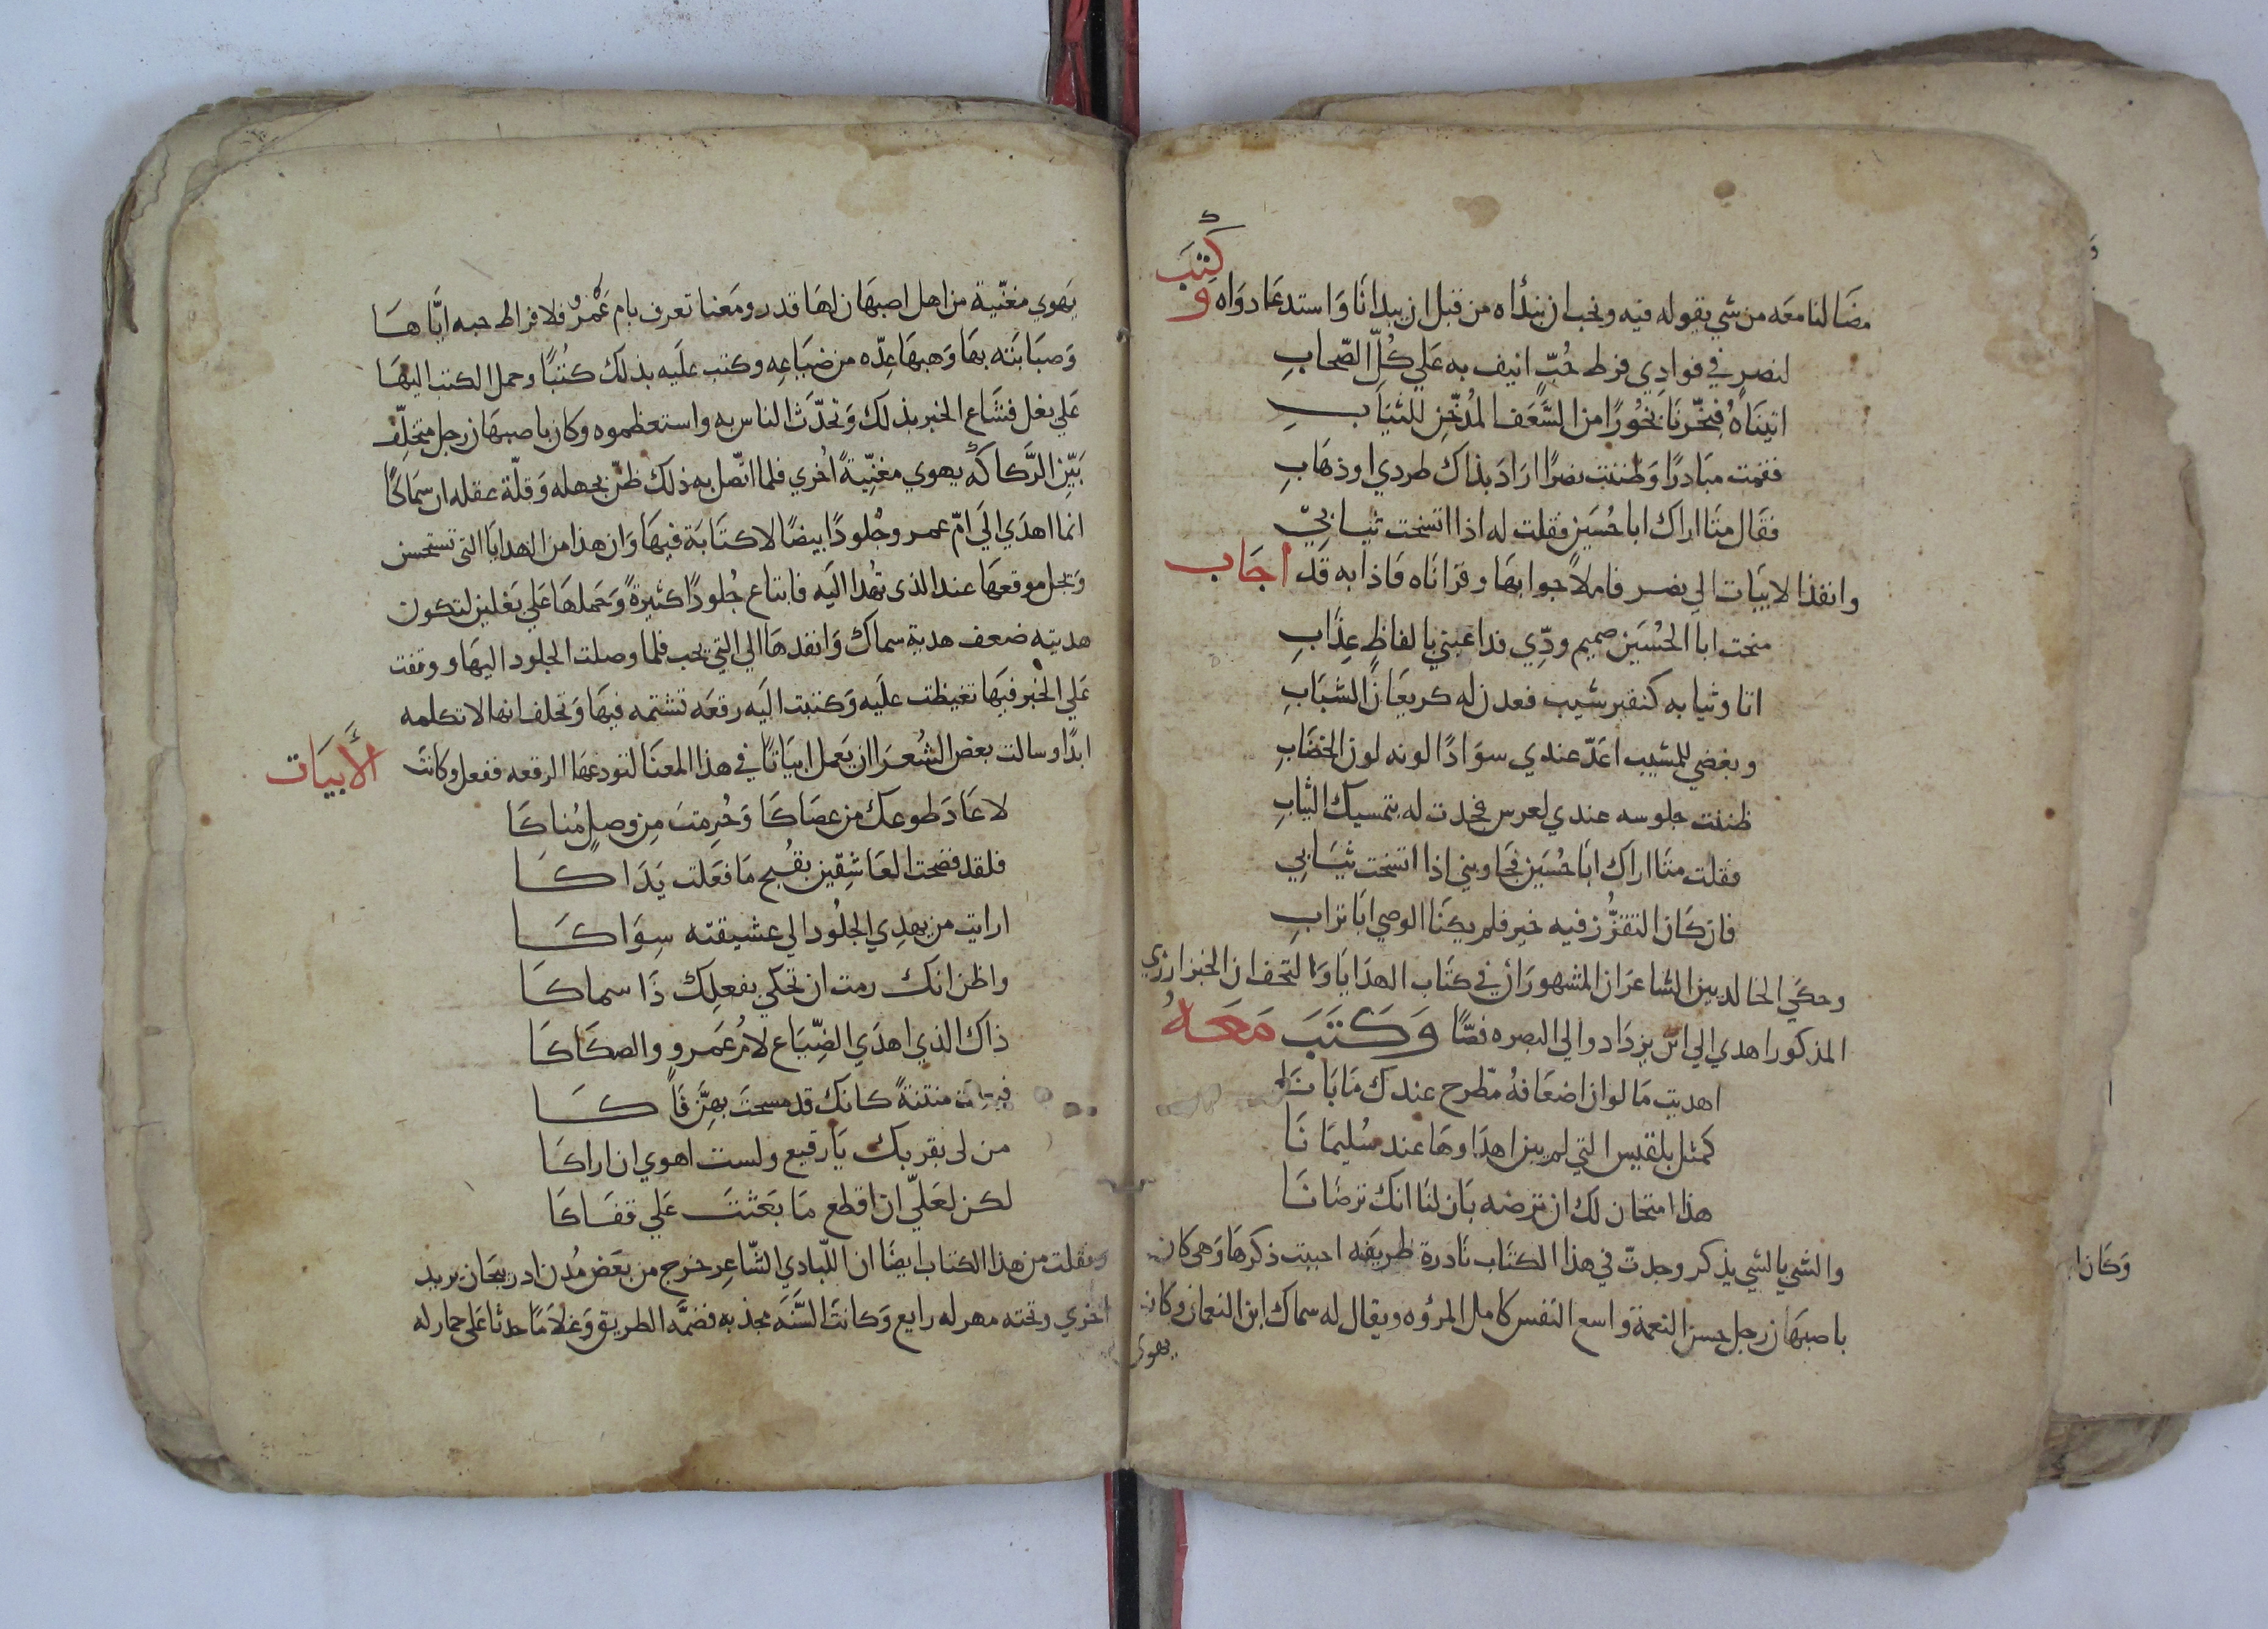 مضا لنا معه من شي يقوله فيه ونحب ان نبدأه من قبل ان يبدانا واستدعا دواه وكتب
لنصر في فوادي فرط حُبٍّ انيف به علي كُلّ الصّحابِ
اتيناهُ فبخّرنا بخورًا من السَّعَف المُدخّن للثياب
فقمت مبادرًا وظننت نصرًا اراد بذاك طردي او ذهابِ
فقال متا اراك ابا حُسَين فقلت له اذا اتسخت ثيابيّ
وانفذ الابيات الي نصر فاملا جوابها وقراناه فاذا به قد اجاب
منحت ابا الحُسَين صميم ودّي فداعبني بالفاظٍ عِذابِ
اتا وثيابه كنقير شيب فعدن له كريعان الشبابِ
وبغضي للمشيب اعَدّ عندي سوادًا لونه لون الخضابِ
ظننت جلوسه عندي لعرس فجدت له بتمسيك الثيابِ
فقلت متا اراك ابا حُسَين فجاوبني اذا اتسخت ثيابي
فان كان التقزُّز فيه خير فلم يكنا الوصي ابا ترابِ
وحكي الخالديين الشاعران المشهوران في كتاب الهدايا والتحف ان الخبز ارزي
المذكور اهدي الي ابن يزداد والي البصره فصًّا وكتب معهُ
اهديت ما لو ان اضعافهُ مطّرح عندك ما بانا
كمثل بلقيس التي لم يبن اهداوها عند سُليمانا
هذا امتحان لك ان ترضه بان لنا انك ترضانا
والشي بالشي يذكر وجدتّ في هذا الكتاب نادرة ظريفه احببت ذكرها وهي كان
باصبهان رجل حسن النعمة واسع النفس كامل المرؤه ويقال له سماك ابن النعمان وكان
يهوي
يهوي مغنّية من اهل اصبهان لها قدر ومعنا تعرف بام عَمْرو فلافراط حبه ايّاها
وصبابته بها وهبها عِدّه من ضياعِه وكتب عليه بذلك كتُبًا وحمل الكتب اليها
علي بغل فشاع الخبر بذلك وتحدّث الناس به واستعظموه وكان باصبهان رجل متخلّف
بَيّن الرَّكاكه يهوي مغنّيةً اخري فلما اتّصل به ذلك ظنّ بجهله وقلّة عقله ان سماكًا
انما اهدي الي امّ عمرو جُلودًا بيضًا لا كتابة فيها وان هذا من الهدايا التي تستحسن
ويجل موقعها عند الذي تهدا اليه فابتاع جُلودًا كثيرةً وحملها علي بغلين لتكون
هديته ضعف هدية سماك وانفدها الي التي يحب فلما وصلت الجلود اليها ووقفت
علي الخبر فيها تغيظت عليه وكتبت اليه رقعه تشتمه فيها وتحلف انها لا تكلمه
ابدًا وسالت بعض الشُعرا ان يعمل ابياتًا في هذا المعنا لتودعها الرقعه ففعل وكانت الأبيات
لا عاد طوعك من عصاكا وحُرِمت مِن وصلٍ مُناكا
فلقد فضحت العاشِقين بقُبح ما فعلت يداكا
ارايت من يهدِي الجلُود الي عشيقته سِواكا
واظن انك رمت ان تحكي بفعلك ذا سماكا
ذاك الذي اهدي الضِّياع لام عَمرو والصكاكا
منتنةً كانك قد مسحت بهِنّ فاكا
من لي بقربك يا رقيع ولست اهوي ان اراكا
لكن لعلّي ان اقطع ما بعثت علي قفاكا
ونقلت من هذا الكتاب ايضا ان اللّبادي الشّاعِر خرج من بعض مُدن ادربيجان يريد
اخري وتحته مهر له رايع وكانت السَّنَه مجذبه فضمَّه الطريق وغلامًا حدثًا علي حمار له
وكان ا